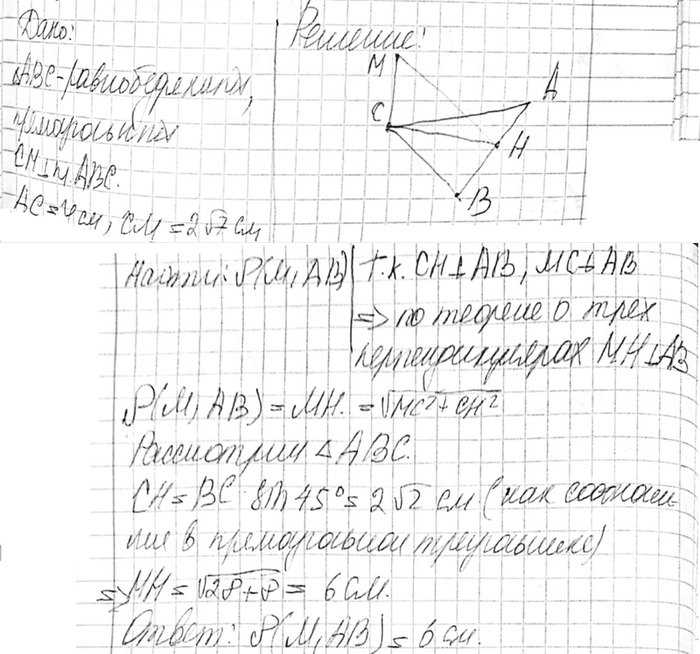 Дано:
△ABC-равнобедренный,
прямоугольный
CM⊥пл.ABC.
AC=4см, CM=2√7 см
Решение:
M
A
C
H
B
Найти: ρ(M,AB)
т.к. CH⊥AB, MC⊥AB
=> по теореме о трех
перпендикулярах MH⊥AB
ρ(M,AB)=MH.=√MC²+CH²
Рассмотрим △ABC.
CH=BC sin45°=2√2 см (как соотноше-
ние в прямоугольном треугольнике)
=> MH=√28+8= 6см.
Ответ: ρ(M,AB)=6см.